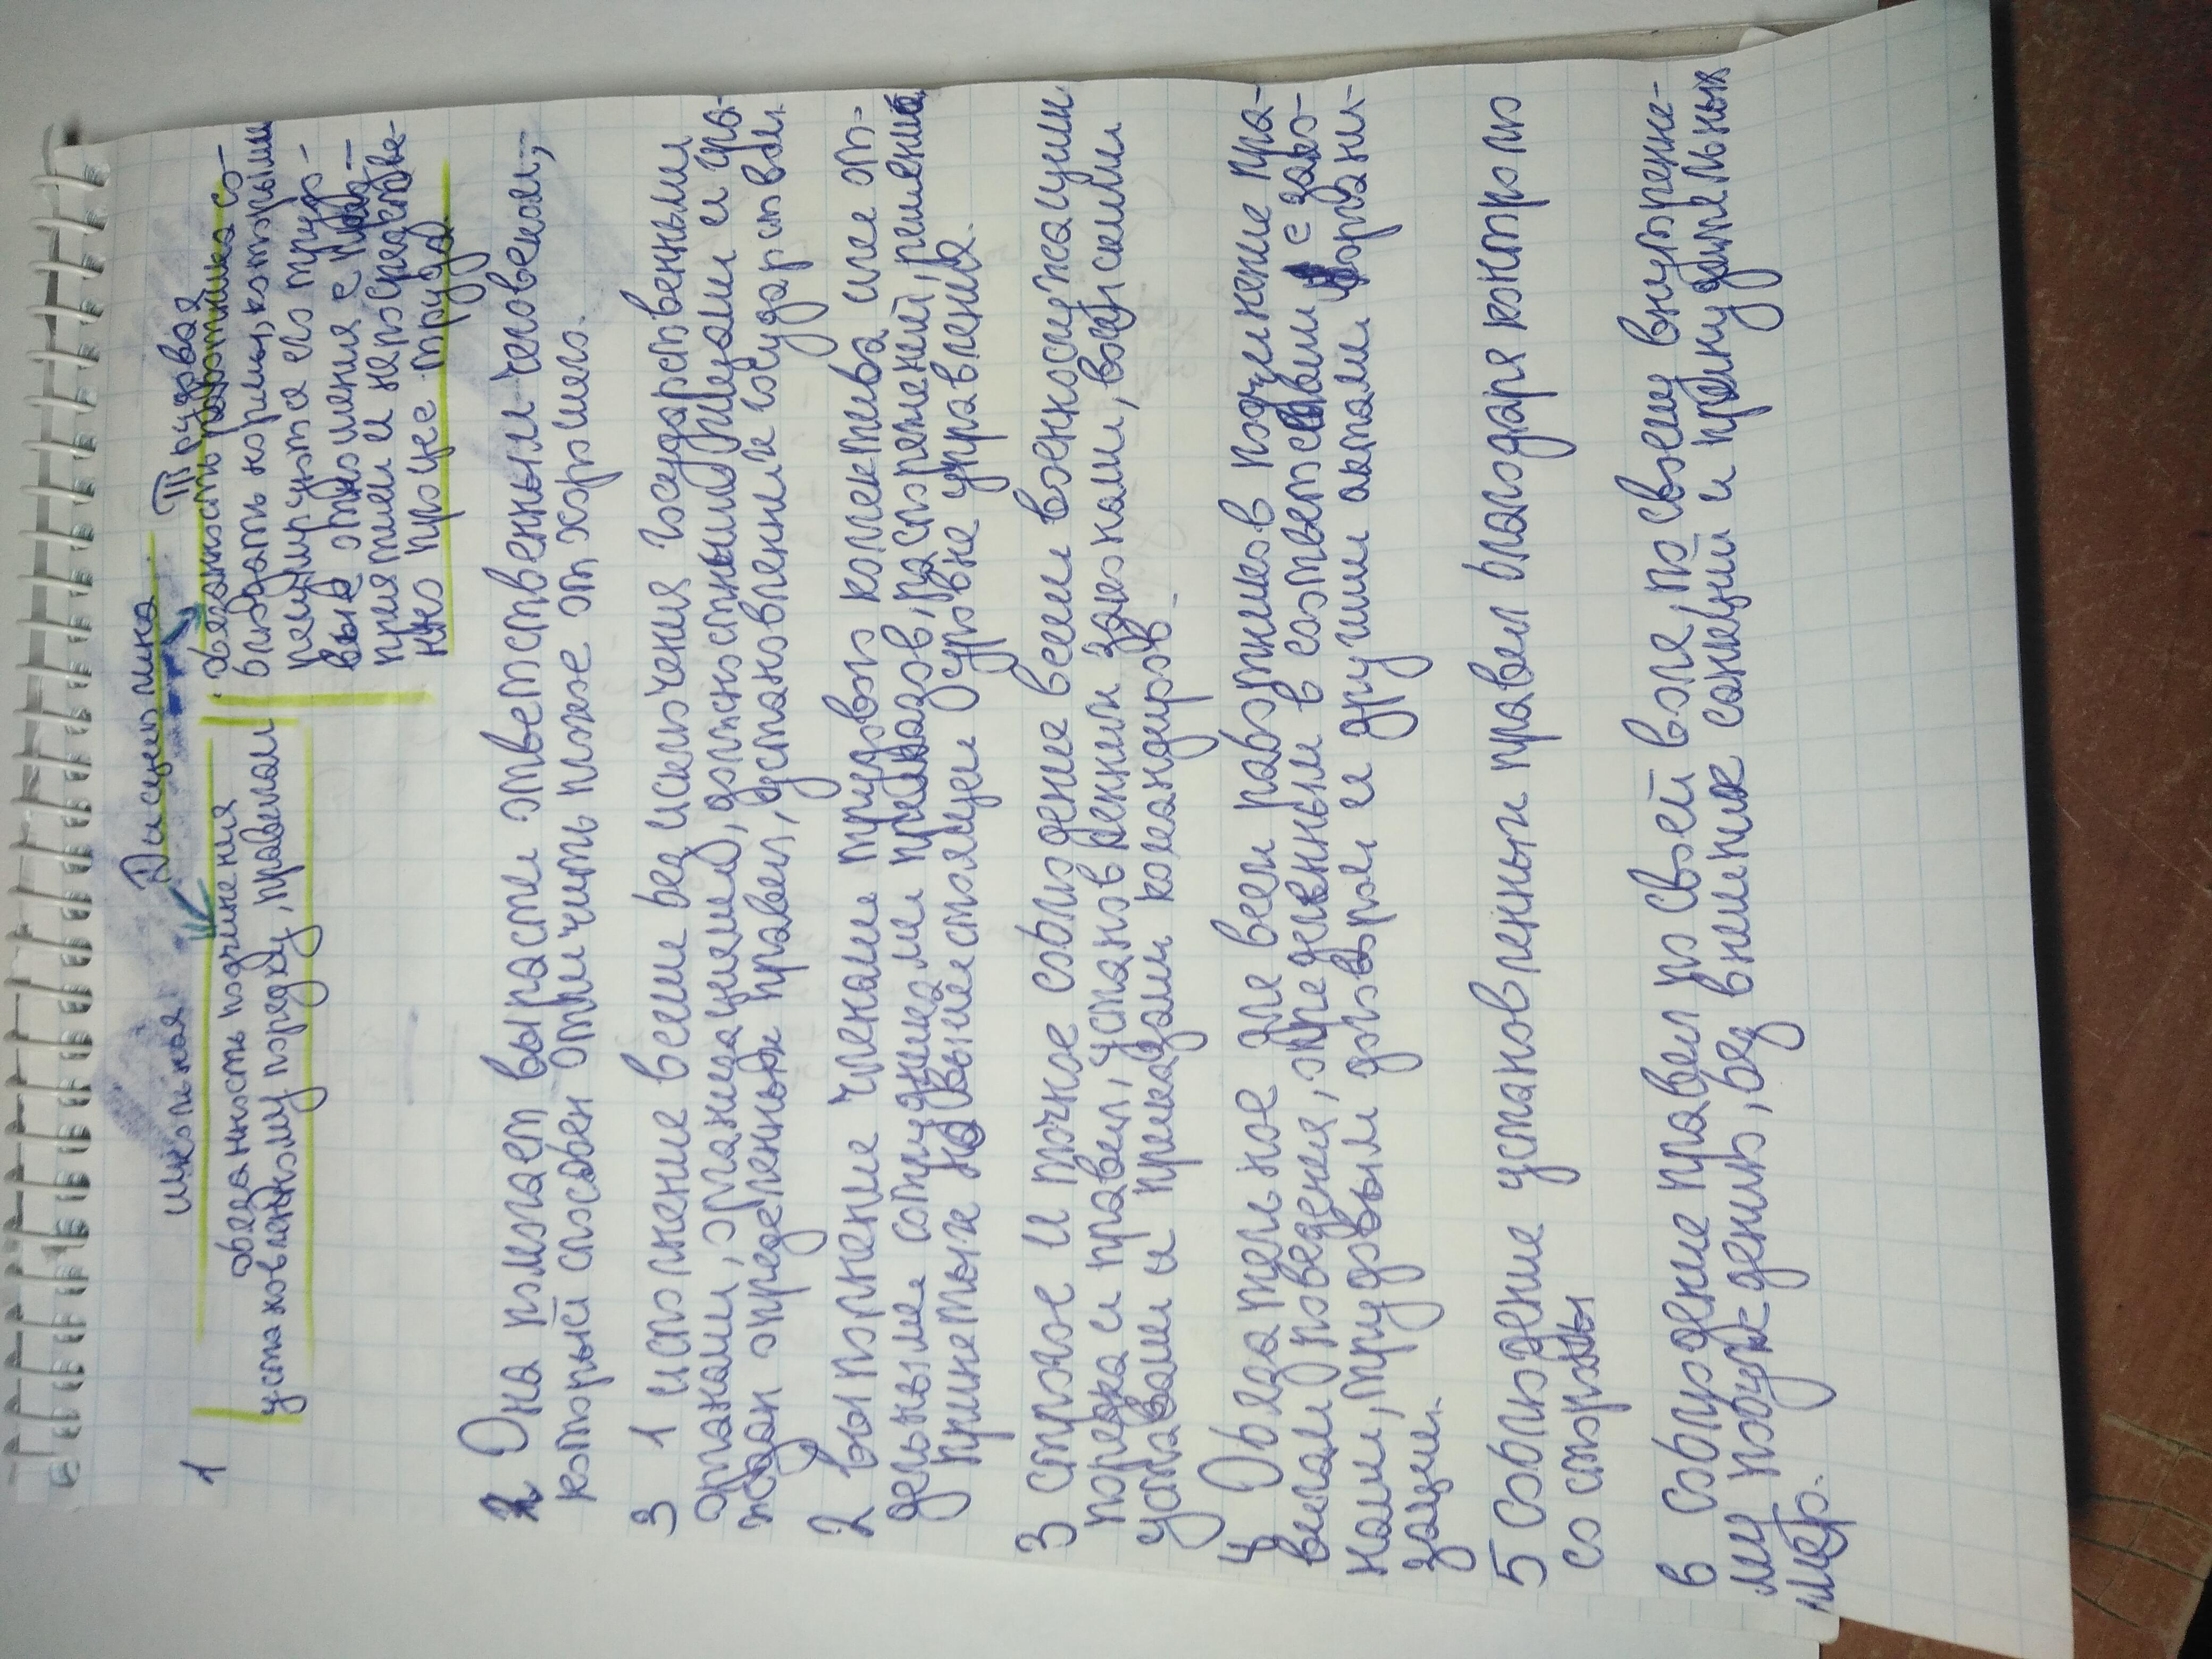 Дисциплина
1 школьная
обезанность подчинения
установленному порядку, правилам
Трудовая
обезанность работника со-
блюдать нормы, которыми
регулируются его трудо-
вые отношения с пред-
приятием и непосредстве-
нно процесс труда
2 Она помогает вырасти ответственным человеком,
который способен отличить плохое от хорошего.
3 1 исполнение всеми без исключения государственными
органами, организациями, должностными лицами и гра-
ждан определенных правил, установленных государством.
2 выполнение членами трудового коллектива или от-
дельными сотрудниками приказов, распорежений, решений,
принетых на вышестоящем уровне управления.
3 строгое и точное соблюдение всеми военнослужащими
порядка и правил, установленных законами, воинскими
уставами и приказами командиров.
4 Обезательное для всех работников подчинение пра-
вилам поведения, определенным в соответствии с зако-
нами, трудовым договором и другими актами органи-
зации.
5 соблюдение установленных правил благодаря контролю
со стороны
6 соблюдение правил по своей воле, по своему внутренне-
му побуждению, без внешних санкций и принудительных
мер.